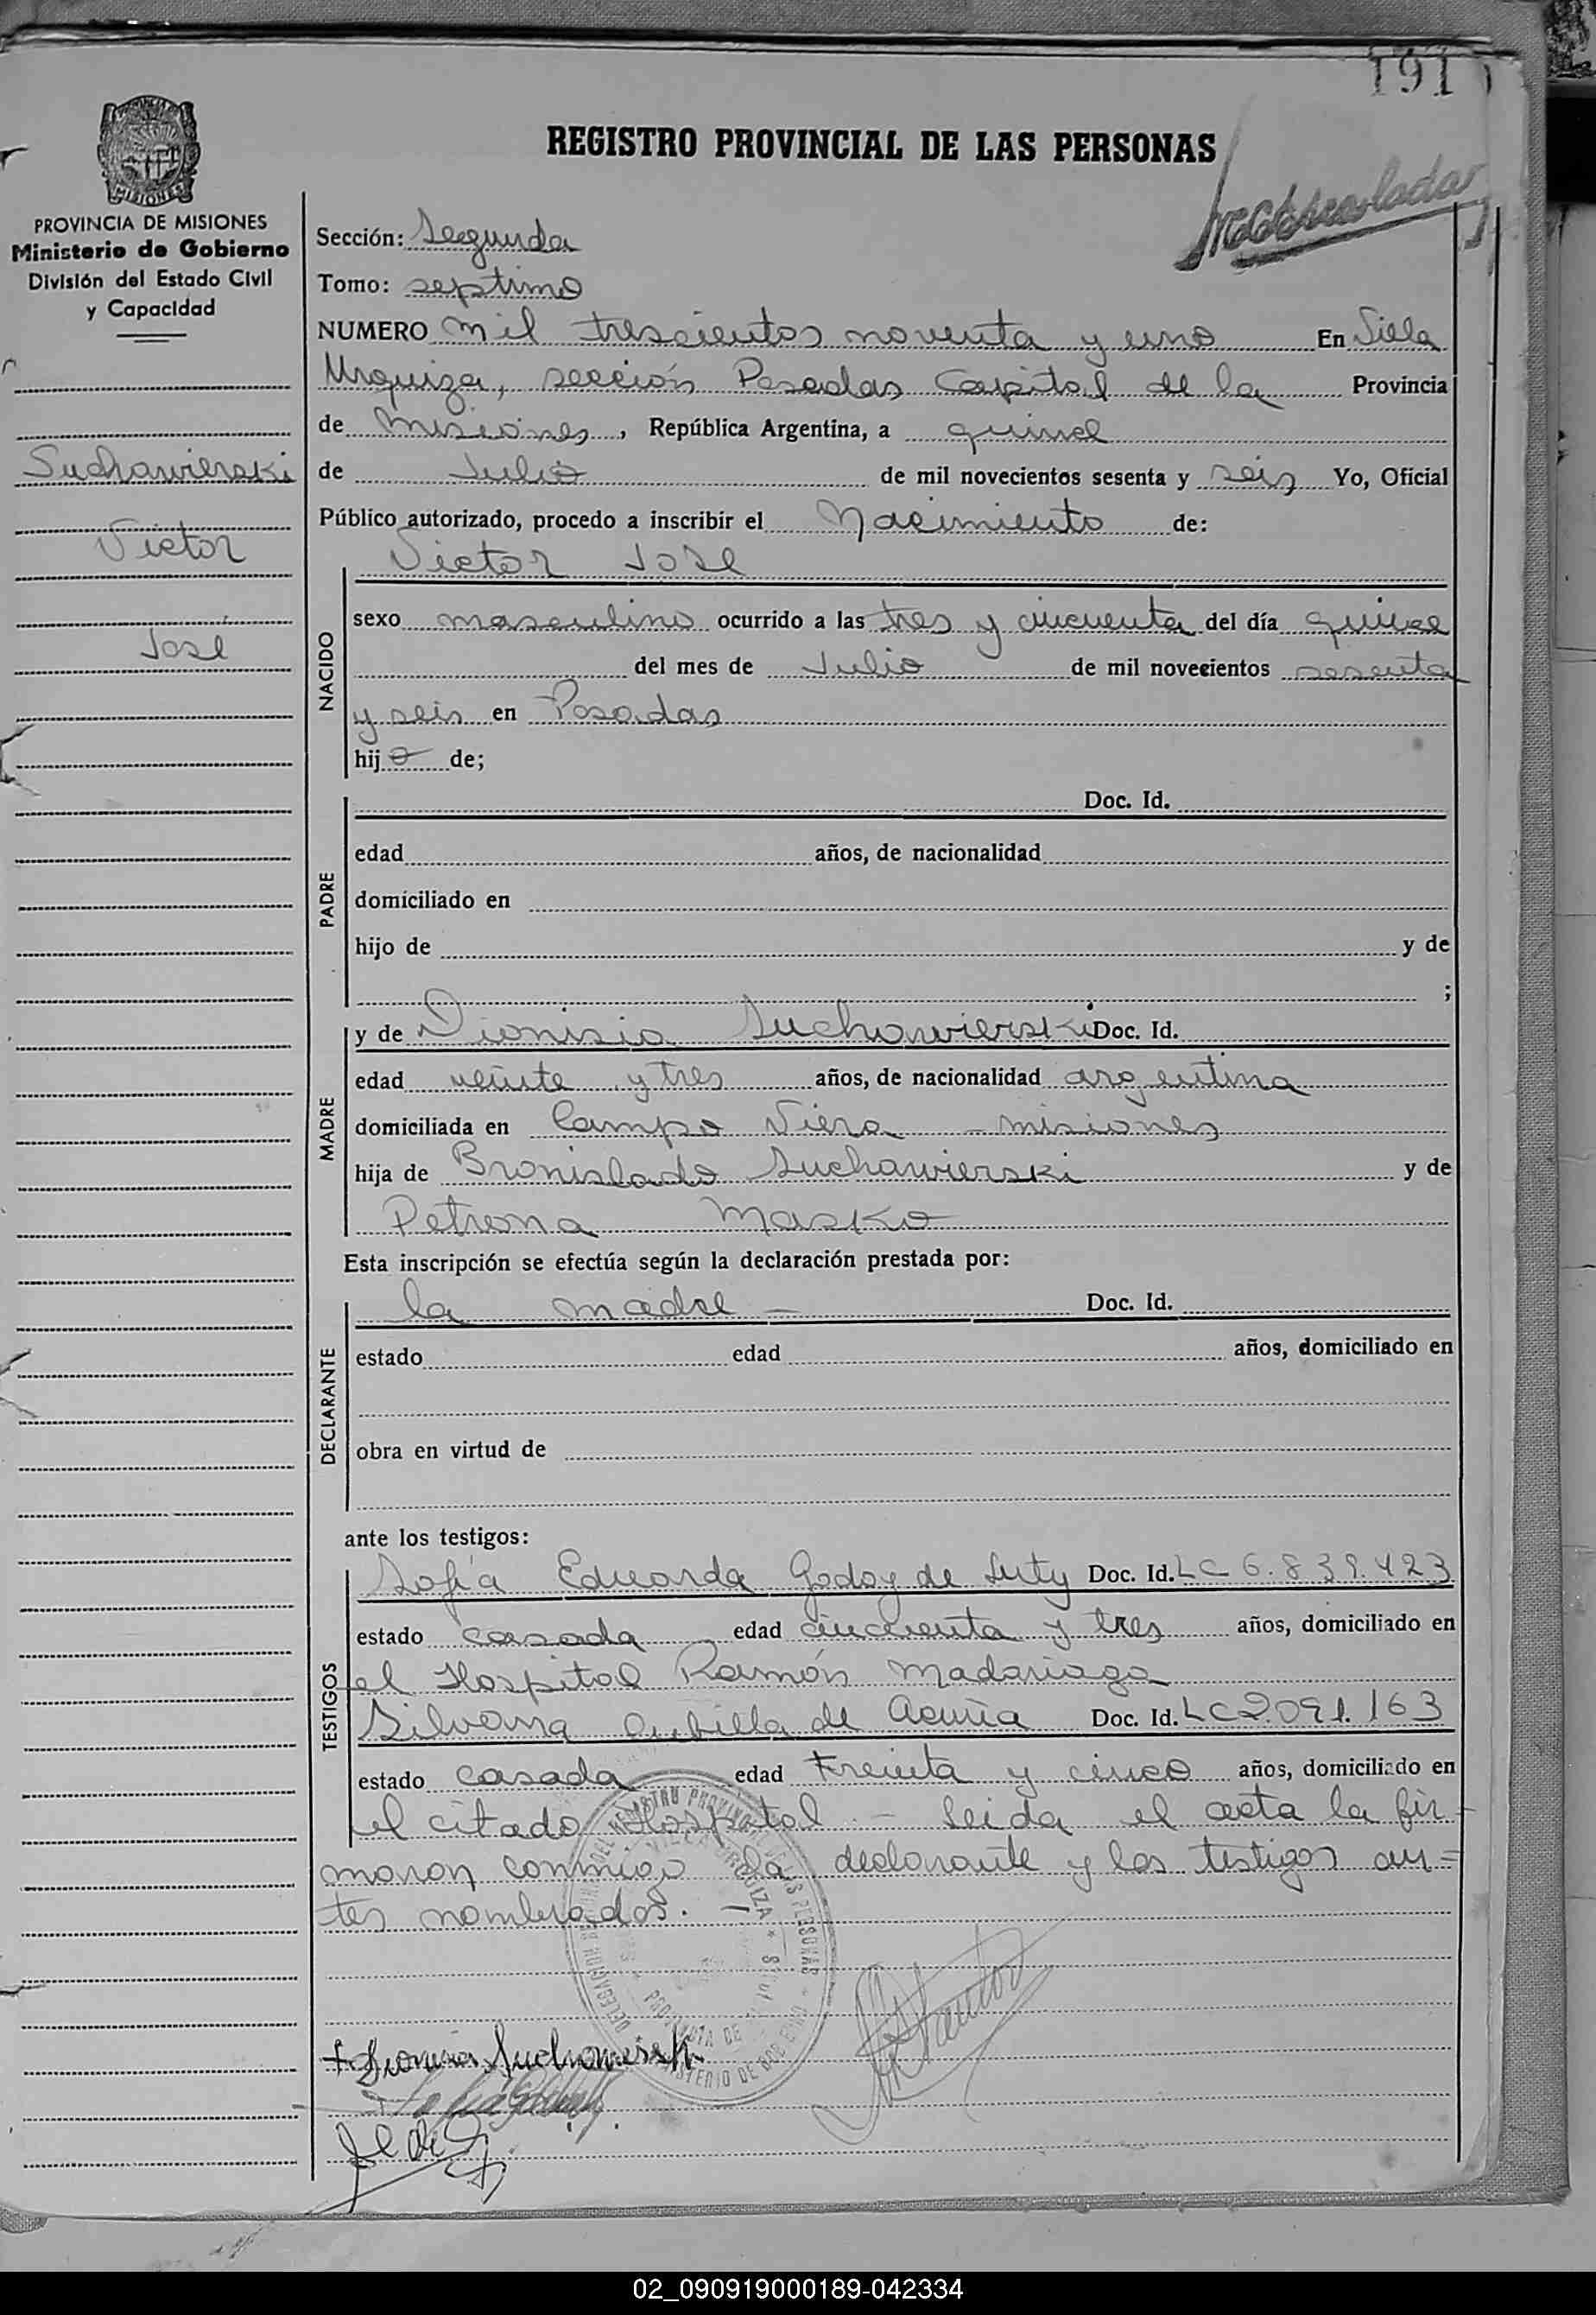 191
REGISTRO PROVINCIAL DE LAS PERSONAS
MISIONES
PROVINCIA DE MISIONES
Ministerio de Gobierno
División del Estado Civil
y Capacidad
Suchawierski
Victor
José
Sección: Segunda
Tomo: septimo
NUMERO mil trescientos noventa y uno En Villa
Urquiza, sección Posadas Capital de la Provincia
de Misiones, República Argentina, a quince
de Julio de mil novecientos sesenta y seis Yo, Oficial
Público autorizado, procedo a inscribir el Nacimiento de:
NACIDO
Victor José
sexo masculino ocurrido a las tres y cincuenta del día quince
del mes de Julio de mil novecientos sesenta
y seis en Posadas
hijo de;
PADRE
Doc. Id.
edad años, de nacionalidad
domiciliado en
hijo de y de
;
MADRE
y de Dionisia Suchowierski Doc. Id.
edad veinte y tres años, de nacionalidad argentina
domiciliada en Campo Viera - misiones
hija de Bronislado Suchawierski y de
Petrona Masko
Esta inscripción se efectúa según la declaración prestada por:
DECLARANTE
la madre - Doc. Id.
estado edad años, domiciliado en
obra en virtud de
ante los testigos:
TESTIGOS
Sofía Eduarda Godoy de Luty Doc. Id. LC 6.839.423
estado casada edad cincuenta y tres años, domiciliado en
el Hospital Ramón Madariaga
Silvana de Acuña Doc. Id. LC 2.091.163
estado casada edad treinta y cinco años, domiciliado en
el citado Hospital. - Leida el acta la fir-
maron conmigo la declarante y los testigos an=
tes nombrados. -
Dionisia
02_090919000189-042334